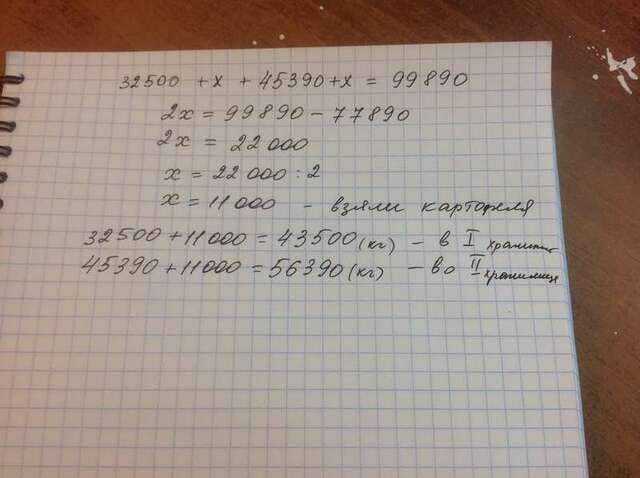 32500 + x + 45390 + x = 99890
2x = 99890 - 77890
2x = 22000
x = 22000 : 2
x = 11000 - взяли картофеля
32500 + 11000 = 43500 (кг) - в I
45390 + 11000 = 56390 (кг) - во II хранилище